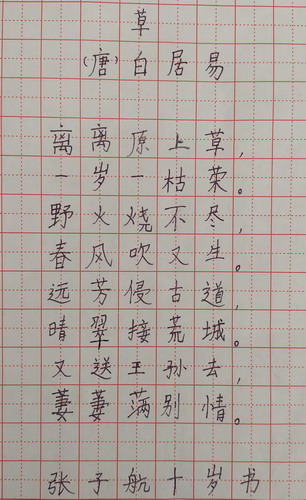 草
（唐）白居易
离离原上草，
一岁一枯荣。
野火烧不尽，
春风吹又生。
远芳侵古道，
晴翠接荒城。
又送王孙去，
萋萋满别情。
张子航十岁书